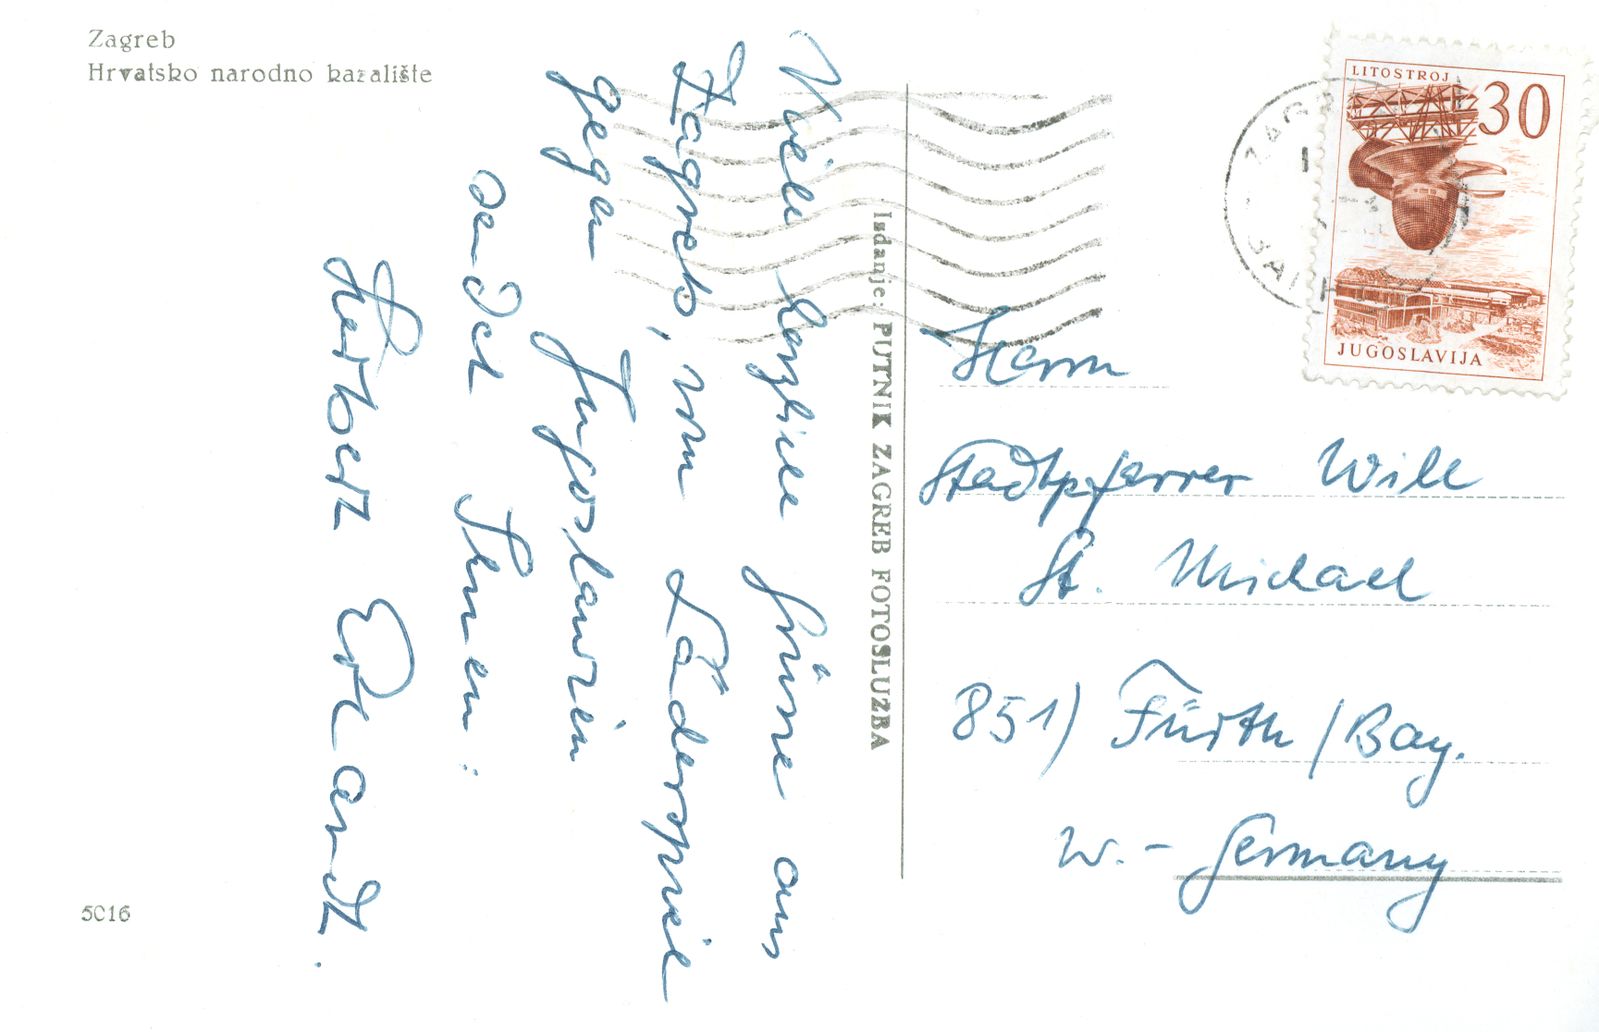 Zagreb
Hrvatsko narodno kazalište
Viele herzliche Grüsse aus
Zagreb, vom Länderspiel
gegen Jugoslawien
sendet Ihnen:
Herbert Erhardt.
5016
Isdanje: PUTNIK ZAGREB FOTOSLUZBA
LITOSTROJ
30
JUGOSLAVIJA
ZAG
Herrn
Stadtpfarrer Will
St. Michael
851) Fürth / Bay.
W.- Germany